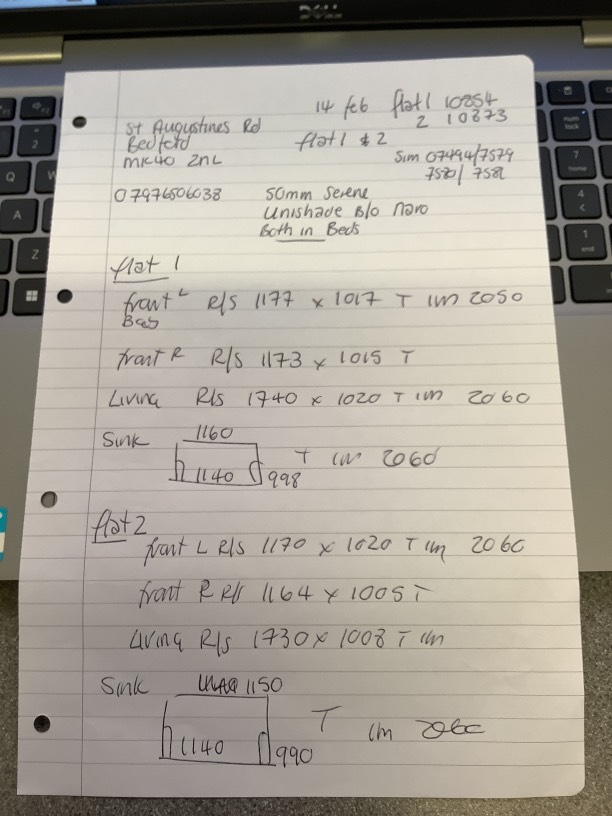 DELL
14 feb flat 1 10854
2 10873
St Augustines Rd
Bedford
MK40 2NL
flat 1 & 2
Sim 07494/7579
7580/7581
07976506038
50mm Serene
Unishade B/o Naro
Both in Beds
flat 1
front L R/S 1177 x 1017 T 1m 2050
Bay
front R R/S 1173 x 1015 T
Living R/S 1740 x 1020 T 1m 2060
Sink 1160
1140 998 T 1m 2060
flat 2
front L R/S 1170 x 1020 T 1m 2060
front R R/S 1164 x 1005 T
Living R/S 1730 x 1008 T 1m
Sink 1150
1140 990 T 1m 2060